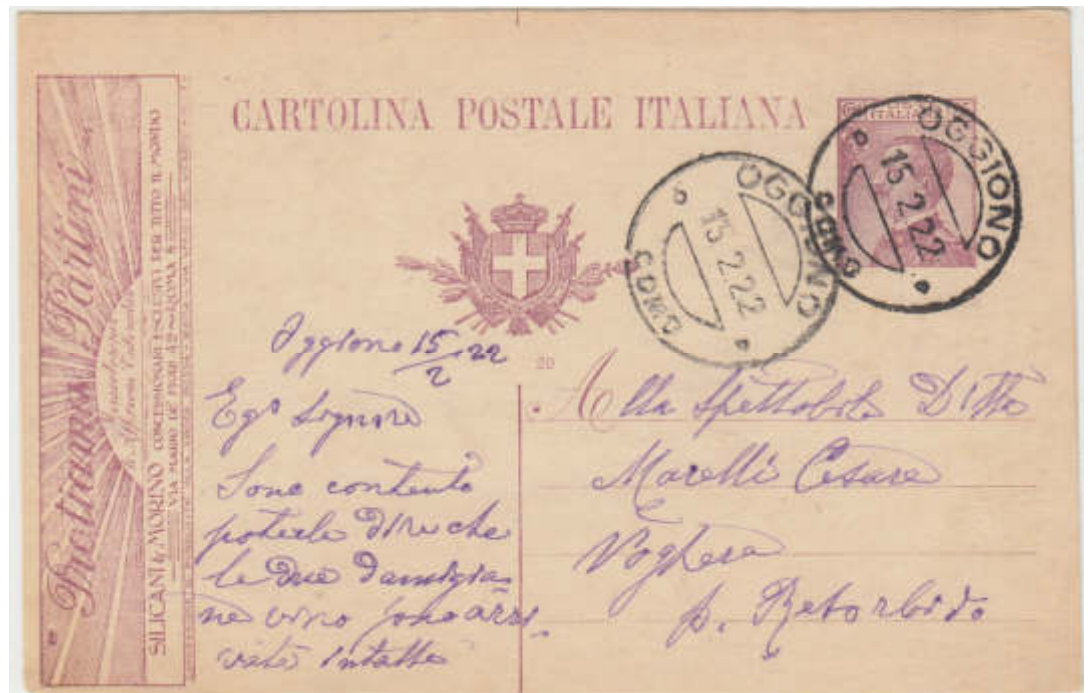 CARTOLINA POSTALE ITALIANA
OGGIONO
15.2.22
COMO
OGGIONO
15.2.22
COMO
Partini
SILICANI & MORINO CONCESSIONARI ESCLUSIVI PER TUTTO IL MONDO
ROMA
20
Oggiono 15/2 22
Ego Signore
Sono contento
poterle dire che
le due damigia
ne vino sono arri
vate intatte
Alla Spettobile Ditta
Marelli Cesare
Voghera
p. Retorbido